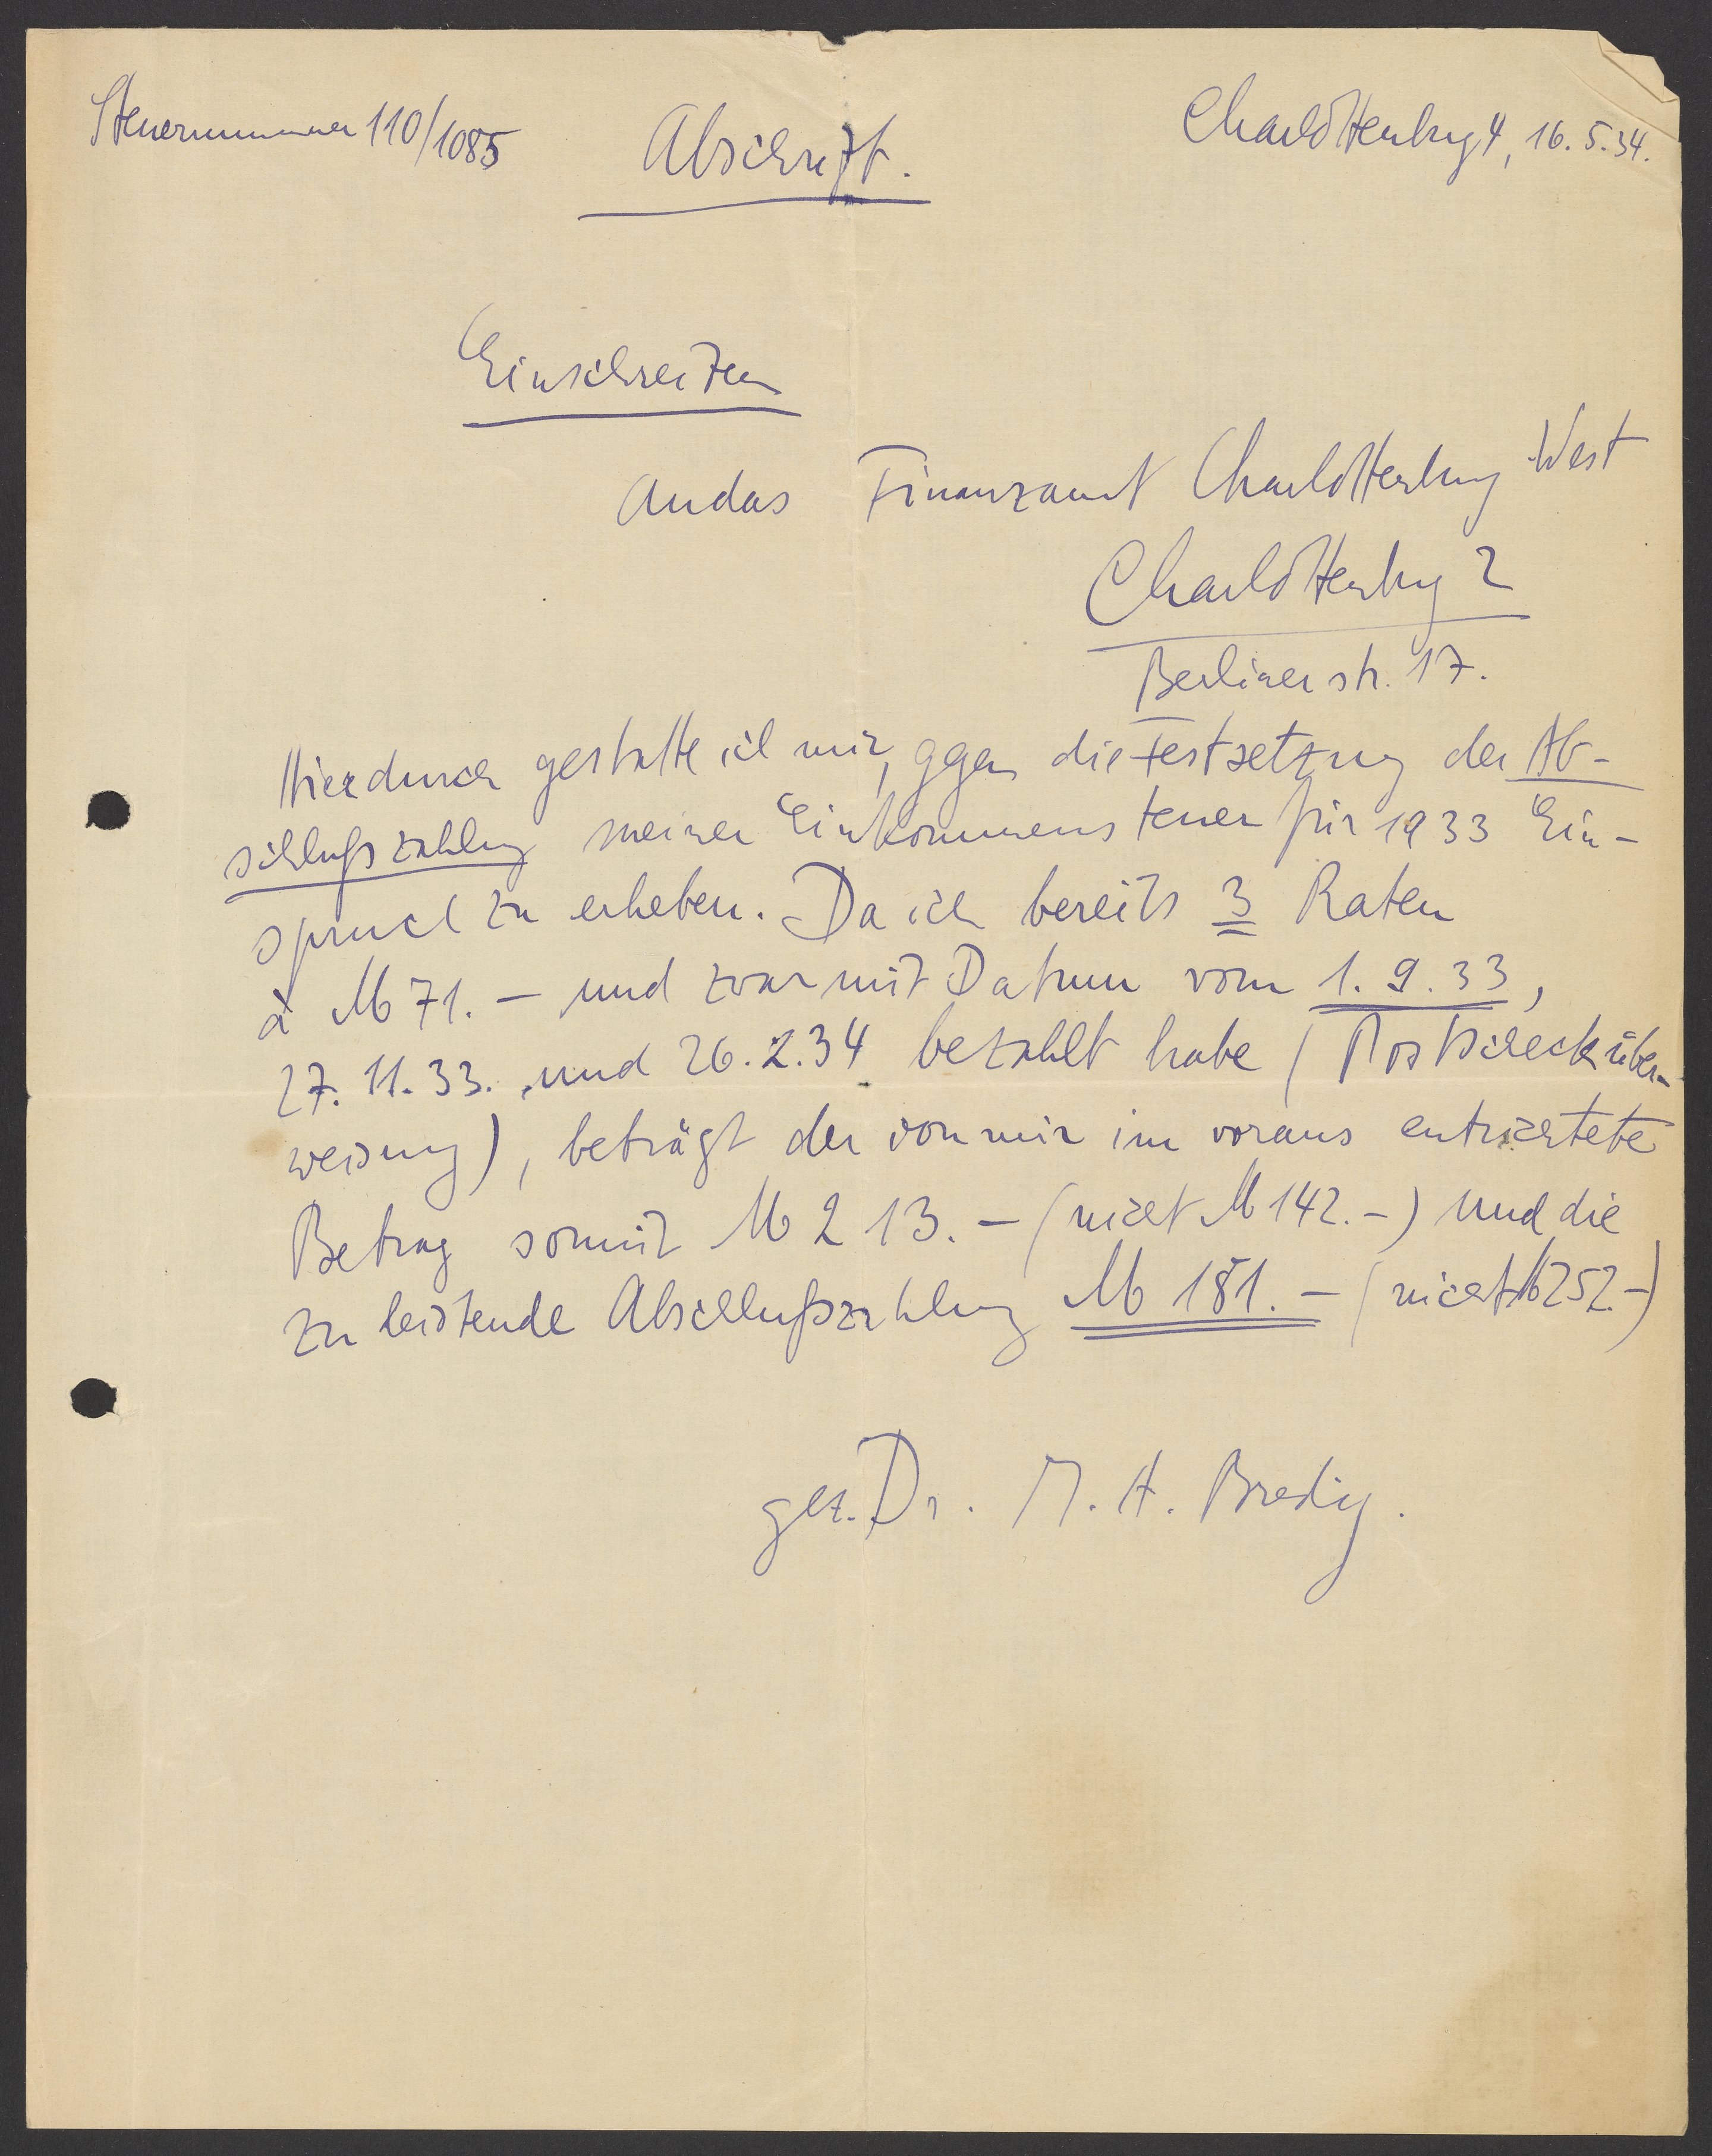 Steuernummer 110/1085
Abschrift.
Charlottenburg 4, 16. 5. 34.
Einschreiben
An das Finanzamt Charlottenburg West
Charlottenburg 2
Berlinerstr. 17.
Hierdurch gestatte ich mir, gegen die Festsetzung der Ab-
schlußzahlung meiner Einkommensteuer für 1933 Ein-
spruch zu erheben. Da ich bereits 3 Raten
à M 71.- und zwar mit Datum vom 1. 9. 33,
27. 11. 33. und 26. 2. 34 bezahlt habe (Postschecküber-
weisung), beträgt der von mir im voraus entrichtete
Betrag somit M 213.- (nicht M 142.-) und die
zu leistende Abschlußzahlung M 181.- (nicht M 252.-)
gez. Dr. M. A. Bredig.